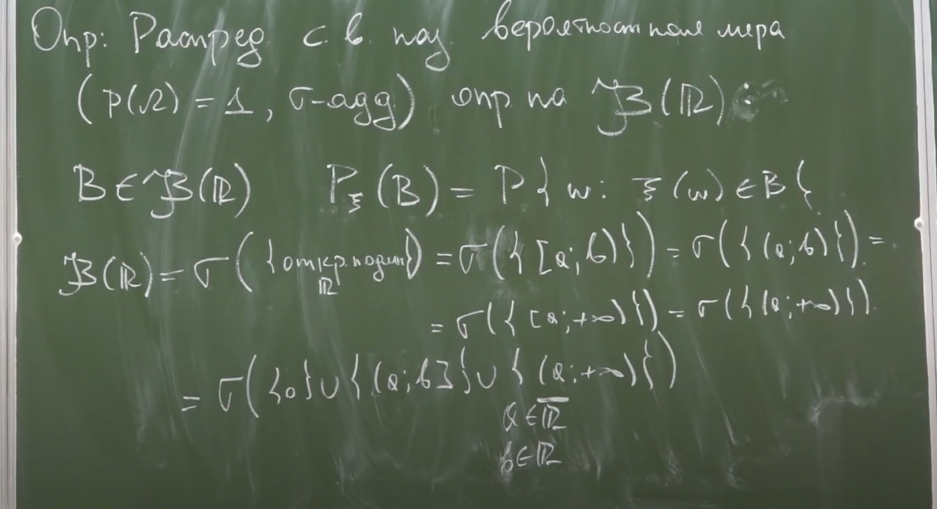 Опр: Распред с.в. наз вероятностная мера
(P(Ω) = 1, σ-адд) опр на 𝔅(ℝ):
B ∈ 𝔅(ℝ) P_ξ(B) = P{ω: ξ(ω) ∈ B}
𝔅(ℝ) = σ({откр. подмн ℝ}) = σ({[a; b)}) = σ({(a; b)}) =
= σ({[a; +∞)}) = σ({(a; +∞)}).
= σ({∅} ∪ {(a; b]} ∪ {(a; +∞)})
a ∈ ℝ̅
b ∈ ℝ